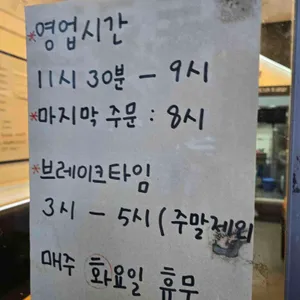 *영업시간
11시 30분 - 9시
*마지막 주문 : 8시
*브레이크타임
3시 - 5시 (주말제외
매주 화요일 휴무